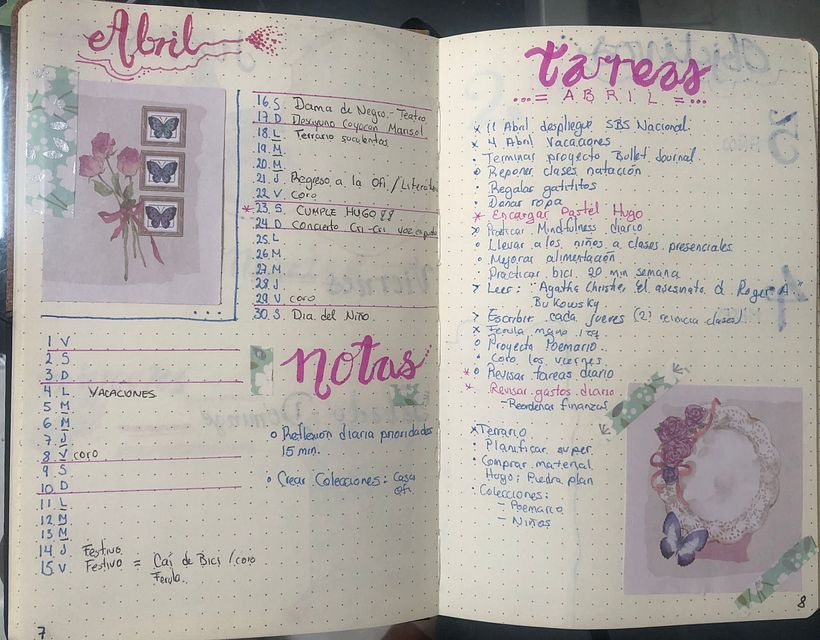 Abril
1 V
2 S
3 D
4 L VACACIONES
5 M
6 M
7 J
8 V coro
9 S
10 D
11 L
12 M
13 M
14 J Festivo
15 V Festivo = Caí de Bici / coro
Ferula.
7
16. S. Dama de Negro. Teatro
17. D Desayuno Coyoacán Marisol
18. L Terrario suculentas
19. M
20. M
21. J Regreso a la Ofi. /
22. V coro
* 23. S. CUMPLE HUGO
24. D Concierto Cri-Cri
25. L
26. M
27. M
28. J
29. V coro
30. S. Dia del Niño.
notas
o Reflexión diaria prioridades
15 min.
• Crear Colecciones: Casa
Ofi.
tareas
...= ABRIL =...
x 11 Abril despliegue SBS Nacional.
x 4 Abril Vacaciones
• Terminar proyecto Bullet Journal.
o Reponer clases natación
• Regalar gatititos
• Donar ropa
* Encargar Pastel Hugo
Practicar Mindfulness diario
o Llevar a los niños a clases presenciales
• Mejorar alimentación
Practicar bici 20 min semana
> Leer: "Agatha Christie "el asesinato d Roger A."
Bukowsky
> Escribir cada jueves (2)
x Ferula mano
o Proyecto Poemario
• Coro los viernes
* o Revisar tareas diario
* Revisar gastos diario
- Reordenar finanzas
x Terrario
• Planificar super
• Comprar material
Hugo: Piedra plan
• Colecciones:
- Poemario
- Niños
8